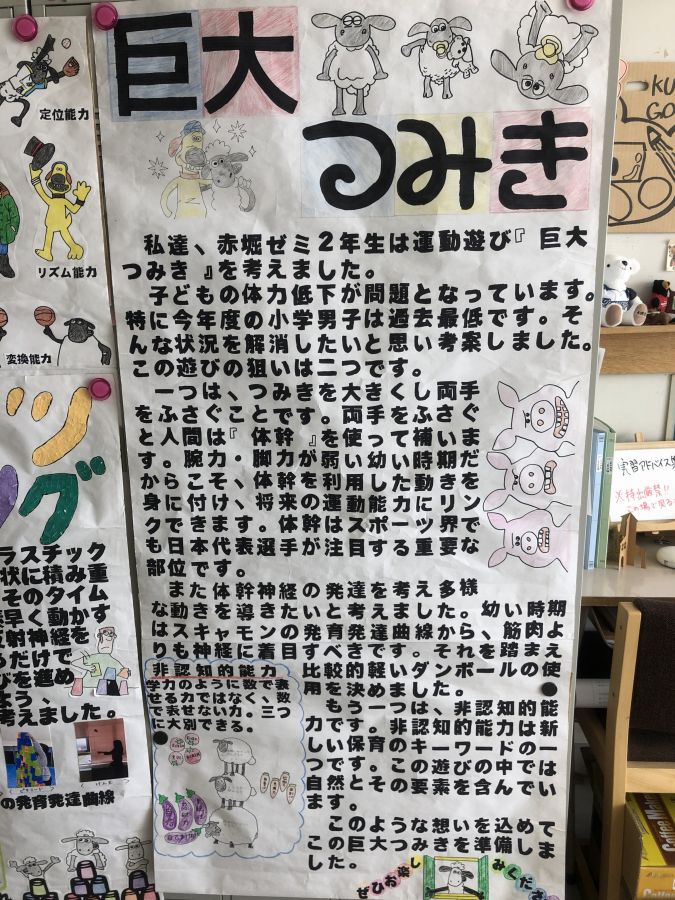 巨大
つみき
私達、赤堀ゼミ2年生は運動遊び『巨大
つみき』を考えました。
子どもの体力低下が問題となっています。
特に今年度の小学男子は過去最低です。そ
んな状況を解消したいと思い考案しました。
この遊びの狙いは二つです。
一つは、つみきを大きくし両手
をふさぐことです。両手をふさぐ
と人間は『体幹』を使って補いま
す。腕力・脚力が弱い幼い時期だ
からこそ、体幹を利用した動きを
身に付け、将来の運動能力にリン
クできます。体幹はスポーツ界で
も日本代表選手が注目する重要な
部位です。
また体幹神経の発達を考え多様
な動きを導きたいと考えました。幼い時期
はスキャモンの発育発達曲線から、筋肉よ
りも神経に着目すべきです。それを踏まえ
比較的軽いダンボールの使
用を決めました。
もう一つは、非認知的能
力です。非認知的能力は新
しい保育のキーワードの一
つです。この遊びの中では
自然とその要素を含んでい
ます。
このような想いを込めて
この巨大つみきを準備しま
した。
非認知的能力
学力のように数で表
せる力ではなく、数
で表せない力。三つ
に大別できる。
ぜひお楽しみくださ
定位能力
リズム能力
変換能力
ツ
ング
ラスチック
状に積み重
そのタイム
素早く動かす
反射神経を
るだけで
びを進め
よう、
考えました。
の発育発達曲線
KU
GO
実習アドバイス
※持出厳禁!!
この場で見る
Coffee